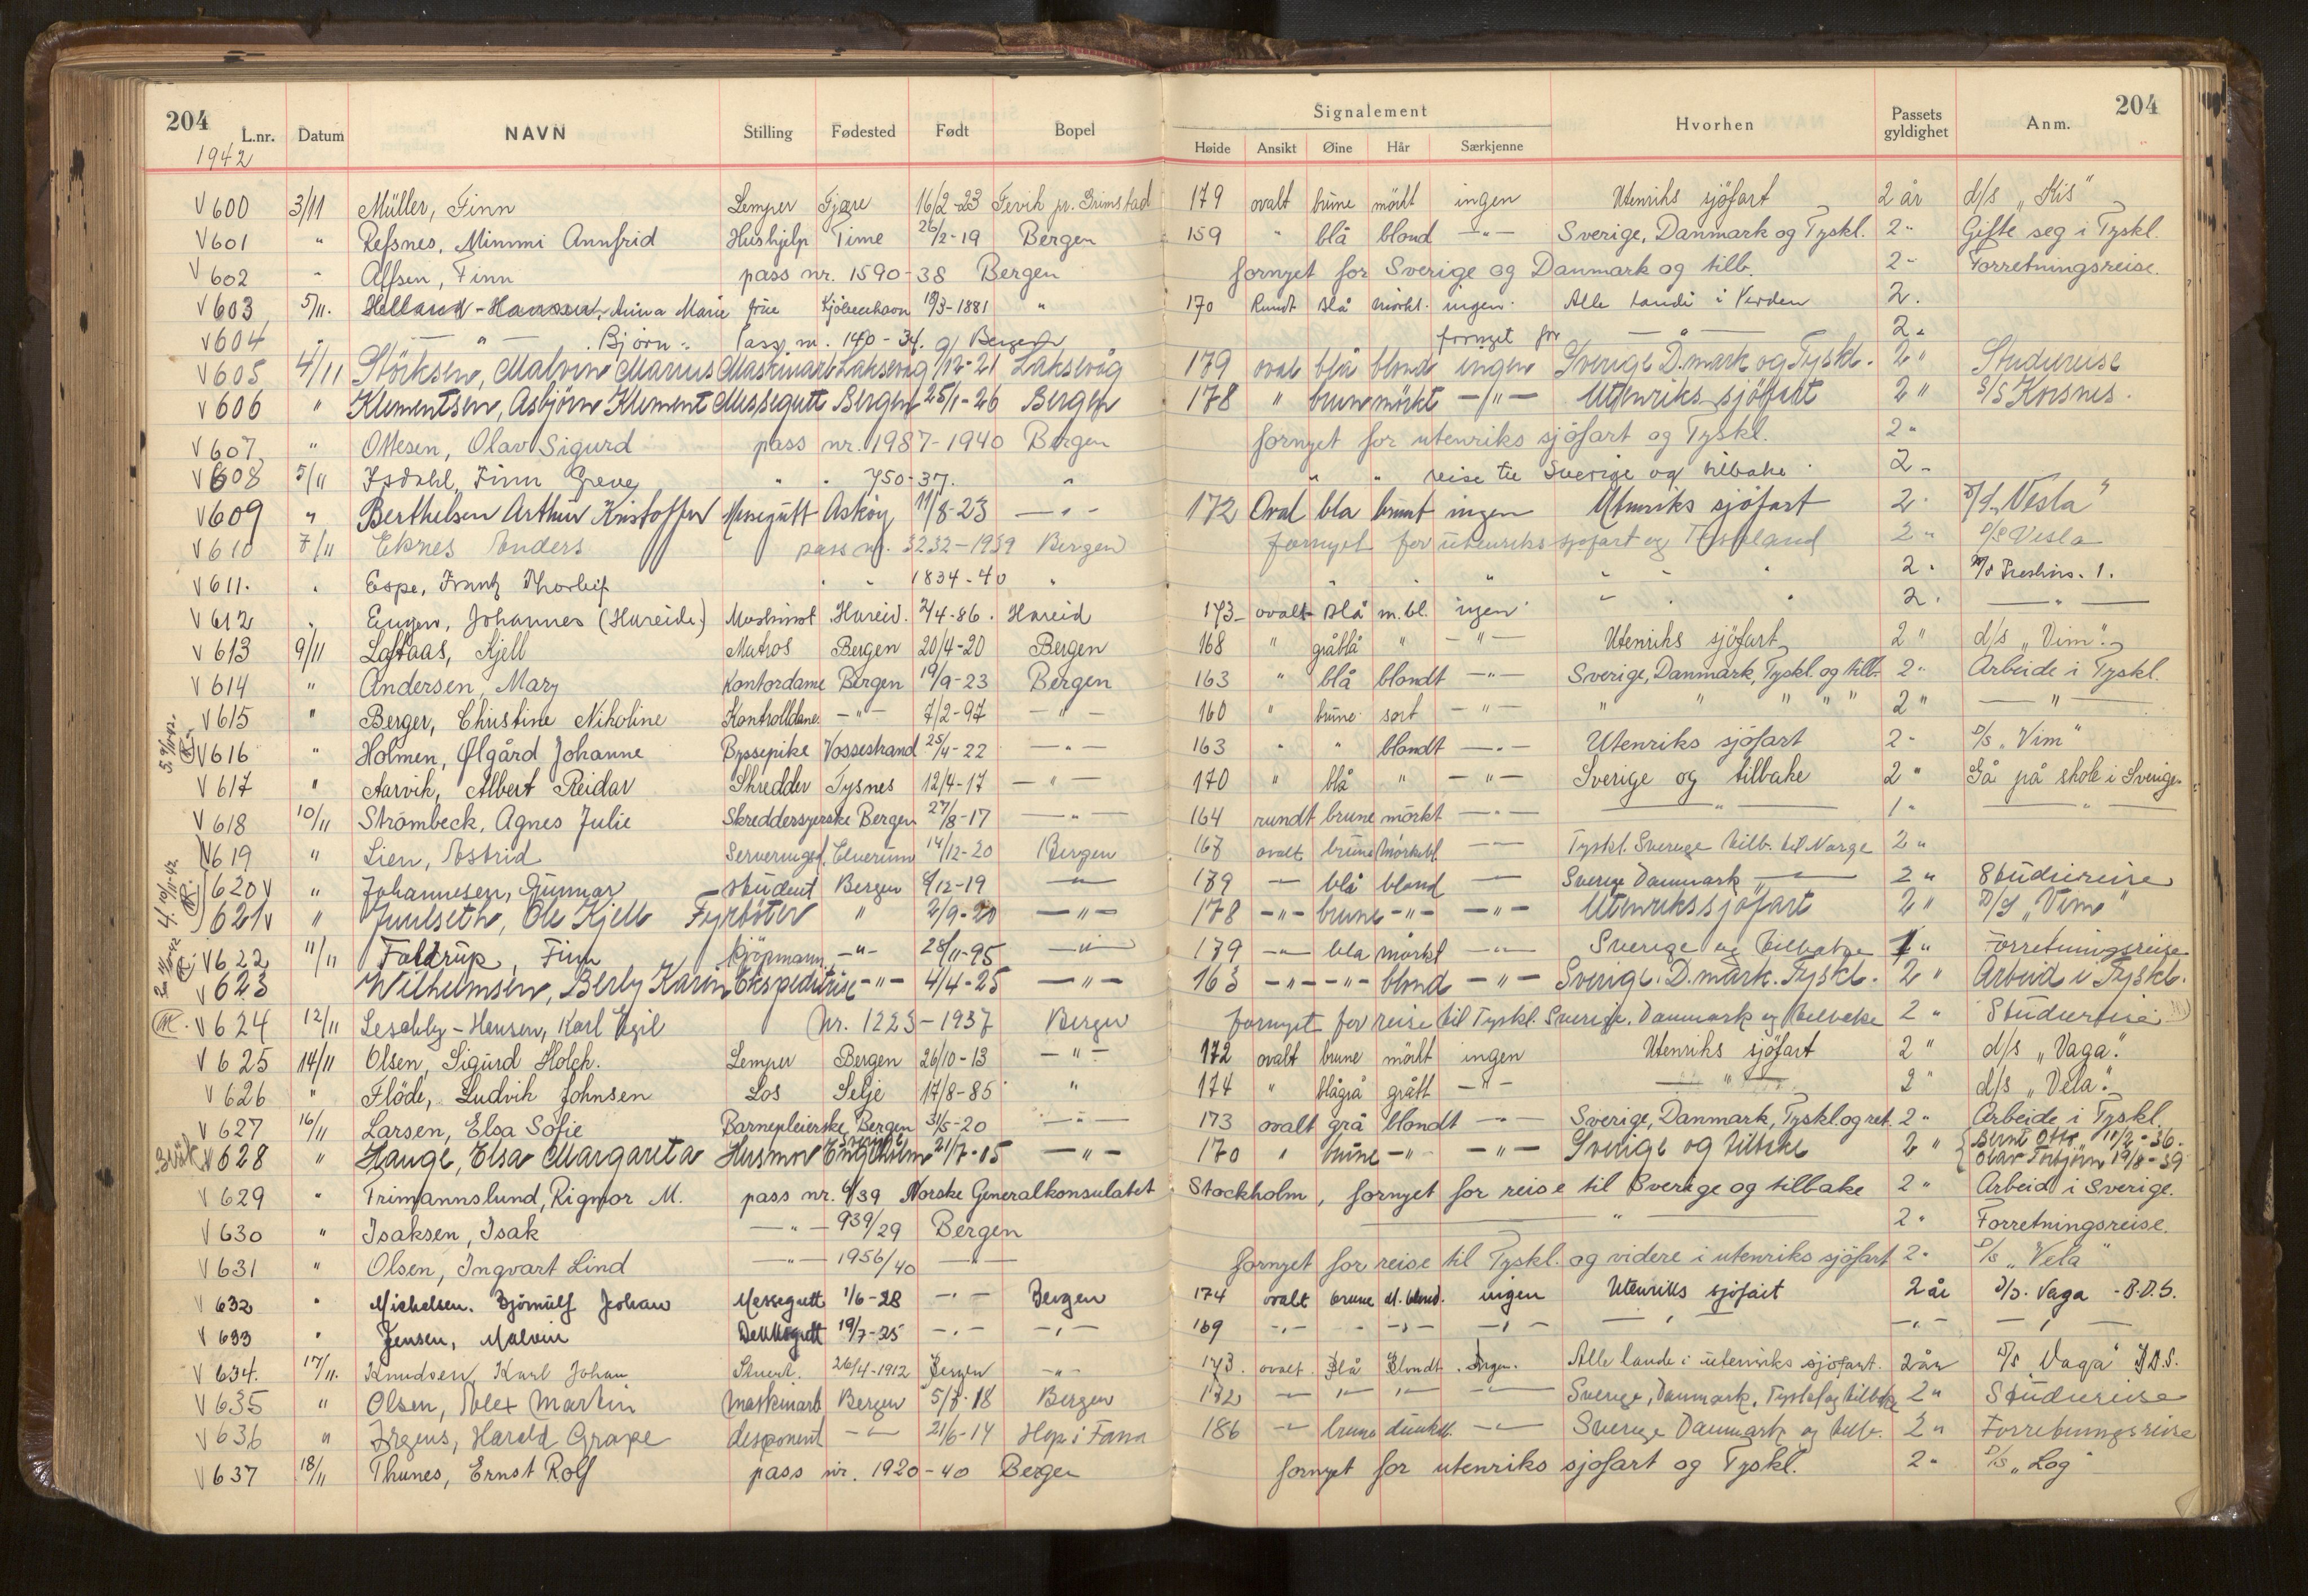 204 204
L.nr. Datum NAVN Stilling Fødested Født Bopel Signalement Hvorhen Passets gyldighet Anm.
Høide Ansikt Øine Hår Særkjenne
1942
V 600 3/11 Müller, Finn Lemper Fjære 16/2-23 Fevik pr. Grimstad 179 ovalt brune mörkt ingen Utenriks sjöfart 2 år d/s „Kis"
V 601 " Refsnes, Mimmi Annfrid Hushjelp Time 26/2-19 Bergen 159 " blå blond -"- Sverige, Danmark og Tyskl. 2 " Gifte seg i Tyskl.
V 602 " Alfsen, Finn pass nr. 1590-38 Bergen fornyet for Sverige og Danmark og tilb. 2 - Forretningsreise.
V 603 5/11. Helland-Hansen, Anna Marie frue Kjöbenhavn 18/3-1881 " 170 Rundt blå mörkt. ingen. Alle lande i Verden 2.
V 604 " -"- Björn. Pass nr. 140-34. Bergen fornyet for -"- 2 "
V 605 4/11 Störksen, Malvin Marius Maskinarb Laksevåg 9/12-21 Laksevåg 179 oval blå blond ingen Sverige D.mark og Tyskl. 2 " Studiereise
V 606 " Klementsen, Asbjörn Klement Messegutt Bergen 25/1-26 Bergen 178 " brune mörkt -"- Utenriks sjöfart 2 " S/S Korsnes.
V 607 " Ottesen, Olav Sigurd pass nr. 1987-1940 Bergen fornyet for utenriks sjöfart og Tyskl. 2 "
V 608 5/11 Isdahl, Finn Greve " " 750-37. " " " reise til Sverige og tilbake. 2 -
V 609 " Berthelsen Arthur Kristoffer Messegutt Asköy 11/8-23 -"- 172 Oval bla brunt ingen Utenriks sjöfart 2 " D/S „Vesla"
V 610 7/11 Eknes Anders pass nr. 3232-1939 Bergen fornyet for utenriks sjöfart og Tyskland 2 " D/S Vesla
V 611. " Espe, Frantz Thorleif " " 1834-40 " " " " " " " 2 "
V 612 " Eugen, Johannes (Hareide.) Maskinist Hareid. 2/4-86. Hareid 173 ovalt blå m.bl. ingen " " " 2 " -"-
V 613 9/11 Loftaas, Kjell Matros Bergen 20/4-20 Bergen 168 " gråblå " -"- Utenriks sjöfart 2 " d/s „Vim".
V 614 " Andersen, Mary Kontordame Bergen 19/9-23 Bergen 163 " blå blondt -"- Sverige, Danmark, Tyskl. og tilb. 2 " Arbeide i Tyskl.
V 615 " Berger, Christine Nikoline Kontrolldame -"- 7/2-97 -"- 160 " brune sort -"- " " " " " 2 " -"-
V 616 " Holmen, Ølgård Johanne Byssepike Vossestrand 25/4-22 -"- 163 " " blondt -"- Utenriks sjöfart 2 - D/s „Vim"
V 617 " Aarvik, Albert Reidar Skredder Tysnes 12/4-17 -"- 170 " blå " -"- Sverige og tilbake 2 " Gå på skole i Sverige
V 618 10/11 Strömbeck, Agnes Julie Skreddersyerske Bergen 27/8-17 -"- 164 rundt brune mörkt -"- -"- 1 " -"-
V 619 " Lien, Astrid Serveringsd. Elverum 14/12-20 Bergen 167 ovalt brune mörkebl -"- Tyskl. Sverige tilb. til Norge 2 "
620 V " Johannesen, Gunnar student Bergen 9/12-19 -"- 179 -"- blå blond -"- Sverige Danmark -"- 2 " Studiereise
621 V " Juulseth, Ole Kjell Fyrböter " 2/9-20 -"- 178 -"- brune -"- -"- Utenrikssjöfart 2 " D/S „Vim"
V 622 11/11 Faldrup, Finn kjöpmann -"- 28/11-95 -"- 179 -"- bla mörkt -"- Sverige og tilbake 1 " Forretningsreise
V 623 Wilhelmsen, Berly Karin Ekspeditrise -"- 4/4-25 -"- 163 -"- -"- blond -"- Sverige. D.mark. Tyskl. 2 " Arbeid i Tyskl.
V 624 12/11 Lesebby-Hansen, Karl Egil Nr. 1223-1937 Bergen fornyet for reise til Tyskl. Sverige. Danmark og tilbake 2 " Studiereise
V 625 14/11 Olsen, Sigurd Holck. Lemper Bergen 26/10-13 -"- 172 ovalt brune mörkt ingen Utenriks sjöfart 2 " d/s „Vaga".
V 626 " Flöde, Ludvik Johnsen Los Selje 17/8-85 " 174 " blågrå grått -"- -"- 2 " d/s „Vela".
V 627 16/11 Larsen, Elsa Sofie Barnepleierske Bergen 31/5-20 -"- 173 ovalt grå blondt -"- Sverige, Danmark, Tyskl. og ret. 2 " Arbeide i Tyskl.
V 628 " Hauge, Elsa Margareta Husmor Engelholm Sverige 21/7-15 -"- 170 " brune -"- -"- Sverige og tilbake 2 " Bernt Otto 11/2-36. Olav Torbjörn 19/8-39
V 629 " Trimannslund, Rigmor M. pass nr. 6/39 Norske Generalkonsulatet Stockholm, fornyet for reise til Sverige og tilbake 2 " Arbeid i Sverige.
V 630 " Isaksen, Isak -"- 939/29 Bergen -"- 2 " Forretningsreise.
V 631 " Olsen, Ingvart Lind -"- 1956/40 -"- fornyet for reise til Tyskl. og videre i utenriks sjöfart 2 " D/s „Vela"
V 632 " Michelsen. Björnulf Johan Messegutt 1/6-28 -"- Bergen 174 ovalt brune d. blond. ingen Utenriks sjöfart 2 år D/S. Vaga - B.D.S.
V 633 " Jensen, Malvin Dekksgutt 19/7-25 -"- -"- 169 -"- " -"- -"- -"- -"- -"-
V 634. 17/11. Knudsen, Karl Johan Stuert. 26/4-1912 Bergen -"- 173. ovalt. Blå Blondt. Ingen. Alle lande i utenriks sjöfart. 2 år D/S „Vaga" B.D.S.
V 635 " Olsen, Alex Martin maskinarb Bergen 5/7-18 Bergen 172 -"- -"- -"- -"- Sverige, Danmark, Tyskl og tilbake 2 " Studiereise
V 636 " Irgens, Harald Grape disponent -"- 21/6-14 Hop i Fana 186 -"- brune dunkel -"- Sverige Danmark og tilb. 2 " Forretningsreise
V 637 18/11 Thunes, Ernst Rolf pass nr. 1920-40 Bergen fornyet for utenriks sjöfart og Tyskl. 2 " D/s „Log"